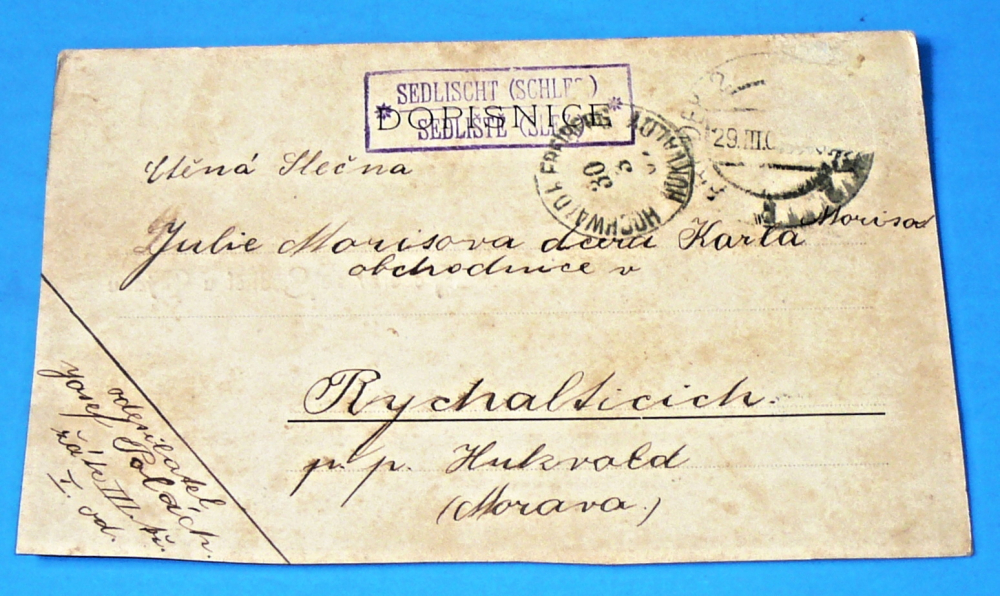 SEDLISCHT (SCHLES)
DOPISNICE
SEDLIŠTĚ (SLEZ
HOCHWALD FREIBERG HUKVALDY
30
3
29.III.0
Ctěná Slečna
Julie Morisova dcera Karla Morisa
obchodnice v
Rychalticích.
p. p. Hukvald
(Morava.)
odesilatel
Josef Polách.
žák III. tř.
I. od.